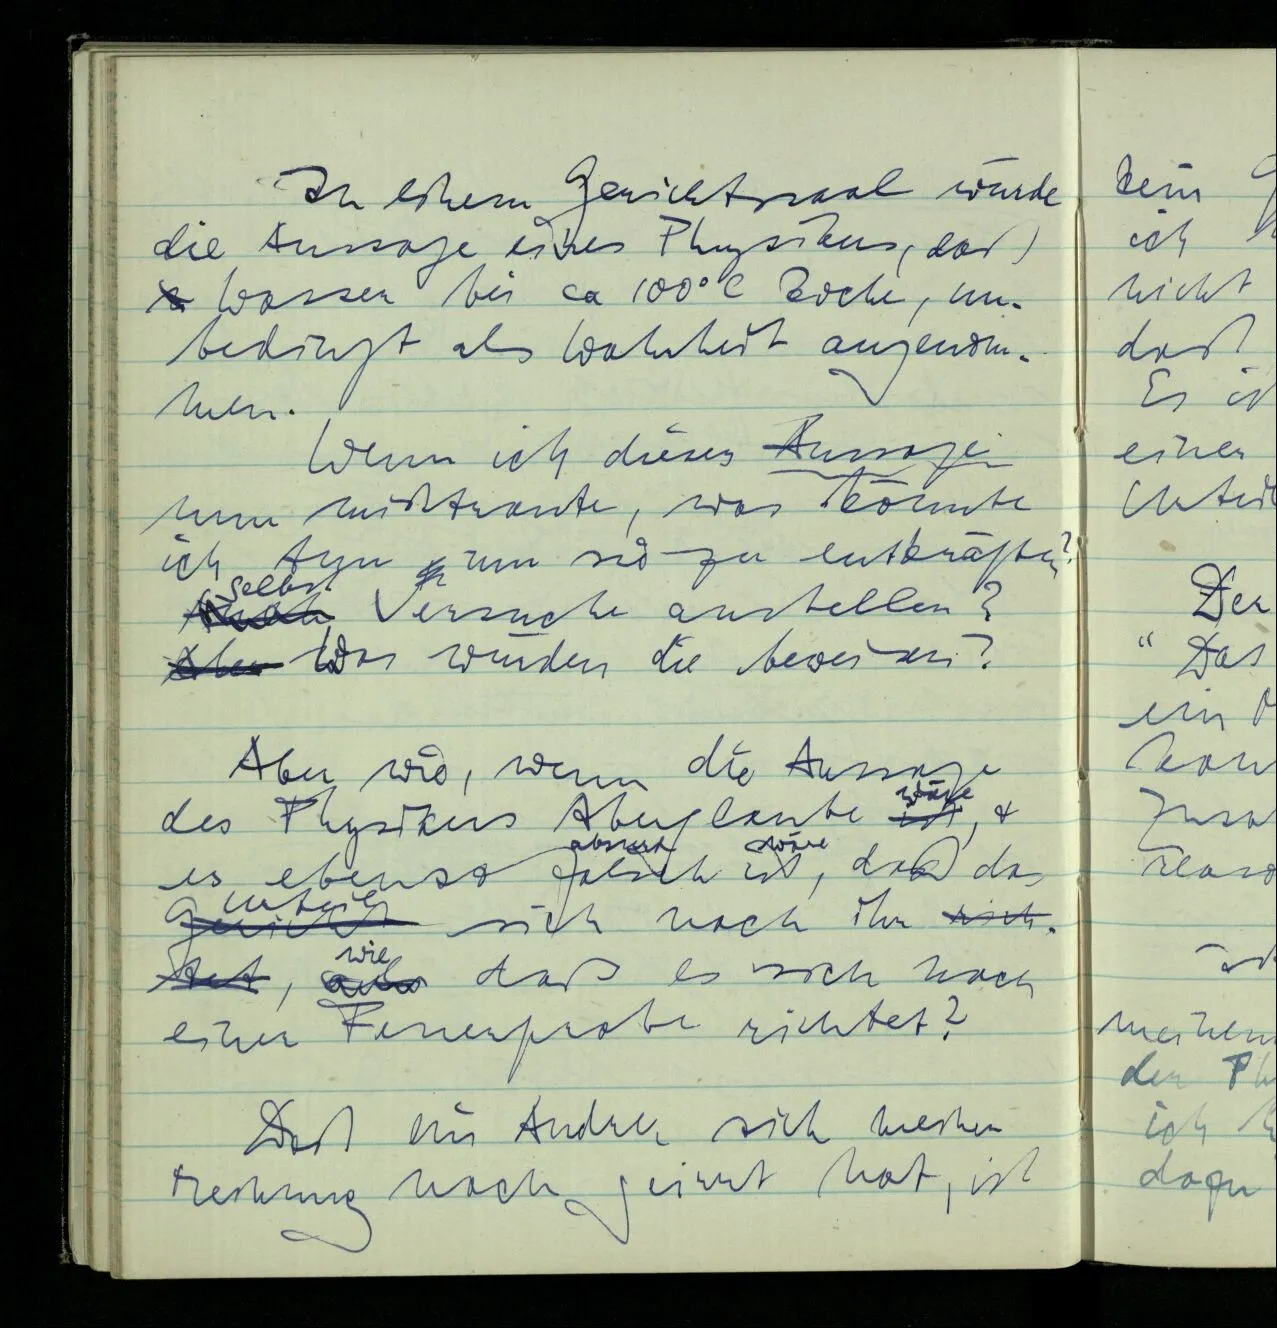 In einem Gerichtssaal würde
die Aussage eines Physikers, daß
Wasser bei ca 100°C koche, un-
bedingt als Wahrheit angenom-
men.
Wenn ich dieser Aussage
nun mißtraute, was könnte
ich tun um sie zu entkräften?
Selbst Versuche anstellen?
Was würden die beweisen?
Aber wie, wenn die Aussage
des Physikers Aberglaube wäre, &
es ebenso absurd wäre, daß das
Urteil sich nach ihr
, wie daß es sich nach
einer Feuerprobe richtet?
Daß ein Andrer sich meiner
Meinung nach geirrt hat, ist
kein
ich
nicht
daß
Es ist
einen
Der
"Das
ein
meinem
der
ich